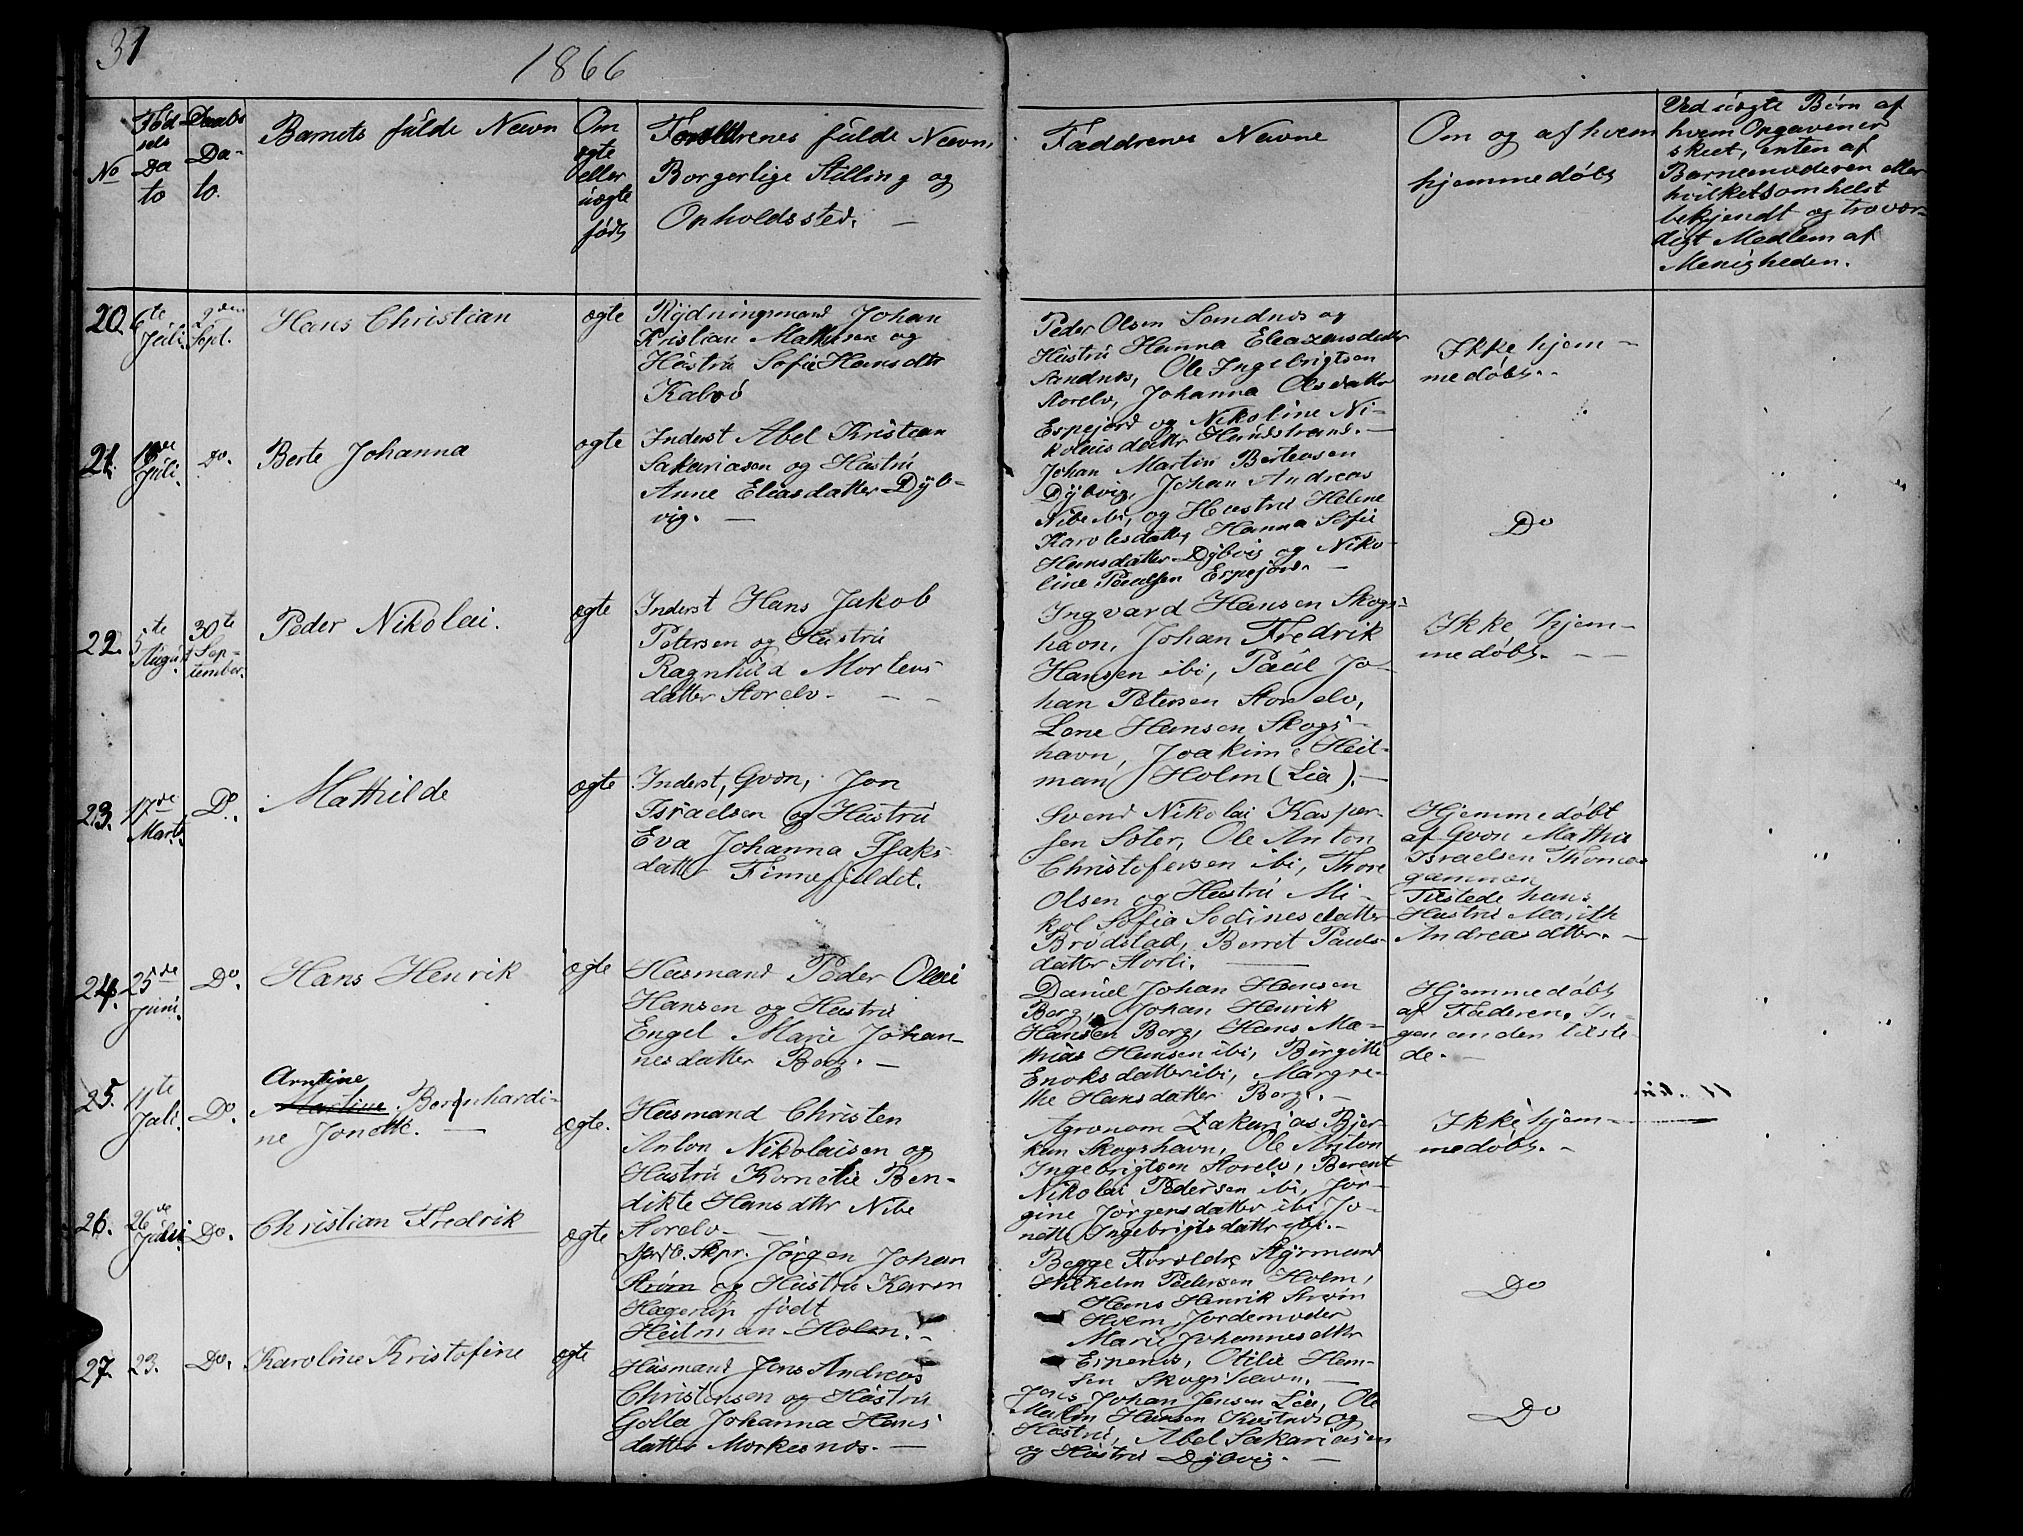 31
1866
No
Fød
sels
Da
to
Daabs
Da-
to.
Barnets fulde Navn
Om
ægte
eller
uægte
født
Forældrenes fulde Navn,
Borgerlige Stilling og
Opholdssted. —
Faddrenes Navne
Om og af hvem
hjemmedøbt
Ved uægte Børn af
hvem Opgaven er
skeet, enten af
Barnemoderen eller
hvilketsomhelst
bekjendt og trovær-
digt Medlem af
Menigheden.
20.
6te
Juli
2den
Sept.
Hans Christian
ægte
Rydningsmand Johan
Kristian Mathisen og
Hustru Sofie Hansdtr
Kalvø
Peder Olsen Sandnes og
Hustru Hanna Eleazersdatter
Sandnes, Ole Ingebrigtsen
Storelv, Johanna Olsdattr
Espejord og Nikoline Ni-
kolausdattr Hundstrand. —
Ikke hjem-
medøbt. -
21.
Juli.
Do.
Berte Johanna
ægte
Inderst Abel Kristian
Sakariasen og Hustru
Anne Eliasdatter Dyb-
vig. —
Johan Martin Berteusen
Dybvig, Johan Andreas
Nibe ibi, og Hustru Helene
Karolesdatter, Hanna Sofie
Hansdatter Dybvig og Niko-
line Paulsen Espejord. —
Do
22.
5te
August
30te
Sep-
tember.
Peder Nikolai.
ægte
Inderst Hans Jakob
Petersen og Hustru
Ragnhild Mortens
datter Storelv. — —
Ingvard Hansen Skogs-
havn, Johan Fredrik
Hansen ibi, Paul Jo-
han Petersen Storelv,
Lone Hansen Skogs-
havn, Joakim Heit-
man Holm (Lia). —
Ikke hjem-
medøbt. — —
23.
17de
Marts
Do.
Mathilde
ægte
Inderst, Qvæn, Jon
Israelsen og Hustru
Eva Johanna Isaks
dattr Finnefjeldet.
Svend Nikolai Kasper-
sen Soter, Ole Anton
Christofersen ibi, Thore
Olsen og Hustru Mi-
kol Sofia Sedinesdatter
Brødstad, Berret Pauls-
datter Storli. —
Hjemmedøbt
af Qvæn Mathis
Israelsen Thomas
gammen
Tilstede hans
Hustru Marith
Andreasdtter. —
24.
25de
Juni.
Do.
Hans Henrik
ægte
Husmand Peder Olai
Hansen og Hustru
Engel Marie Johan-
nesdatter Borg. —
Daniel Johan Hansen
Borg, Johan Henrik
Hansen Borg, Hans Ma-
thias Hansen ibi, Birgitte
Enoksdatter ibi, Margre-
the Hansdatter Borg. —
Hjemmedøbt
af Faderen. In-
gen anden tilste-
de. —
25.
11te
Juli.
Do.
Arntine
Martine Bernhardi-
ne Jonette. —
ægte.
Husmand Christen
Anton Nikolaisen og
Hustru Kornelie Ben-
dikte Hansdtr Nibe
Storelv. —
Agronom Zakarias Bjer-
kan Skogshavn, Ole Anton
Ingebrigtsen Storelv, Berent
Nikolai Pedersen ibi, Jor-
gine Jørgensdatter ibi, Jo-
nette Ingebrigtsdattr ibi. —
Ikke hjem-
medøbt. —
26.
26de
Juli
Do.
Christian Fredrik
ægte
Skpr. Jørgen Johan
Strøm og Hustru Karen
Hagerup født
Heitman Holm. —
Begge Forældre Styrmand
Vilhelm Pedersen Holm,
Hans Henrik Strøm
Holm, Jordemoder
Marie Johannesdtr
Espenes, Otilie Han-
sen Skogshavn. —
Do
27.
23.
Do.
Karoline Kristofine
ægte
Husmand Jens Andreas
Christensen og Hustru
Golla Johanna Hans
datter Morkesnæs. —
Jens Johan Jensen Lia, Ole
Malin Hansen Kastnes og
Hustru, Abel Sakariasen
og Hustru Dybvig. —
Do